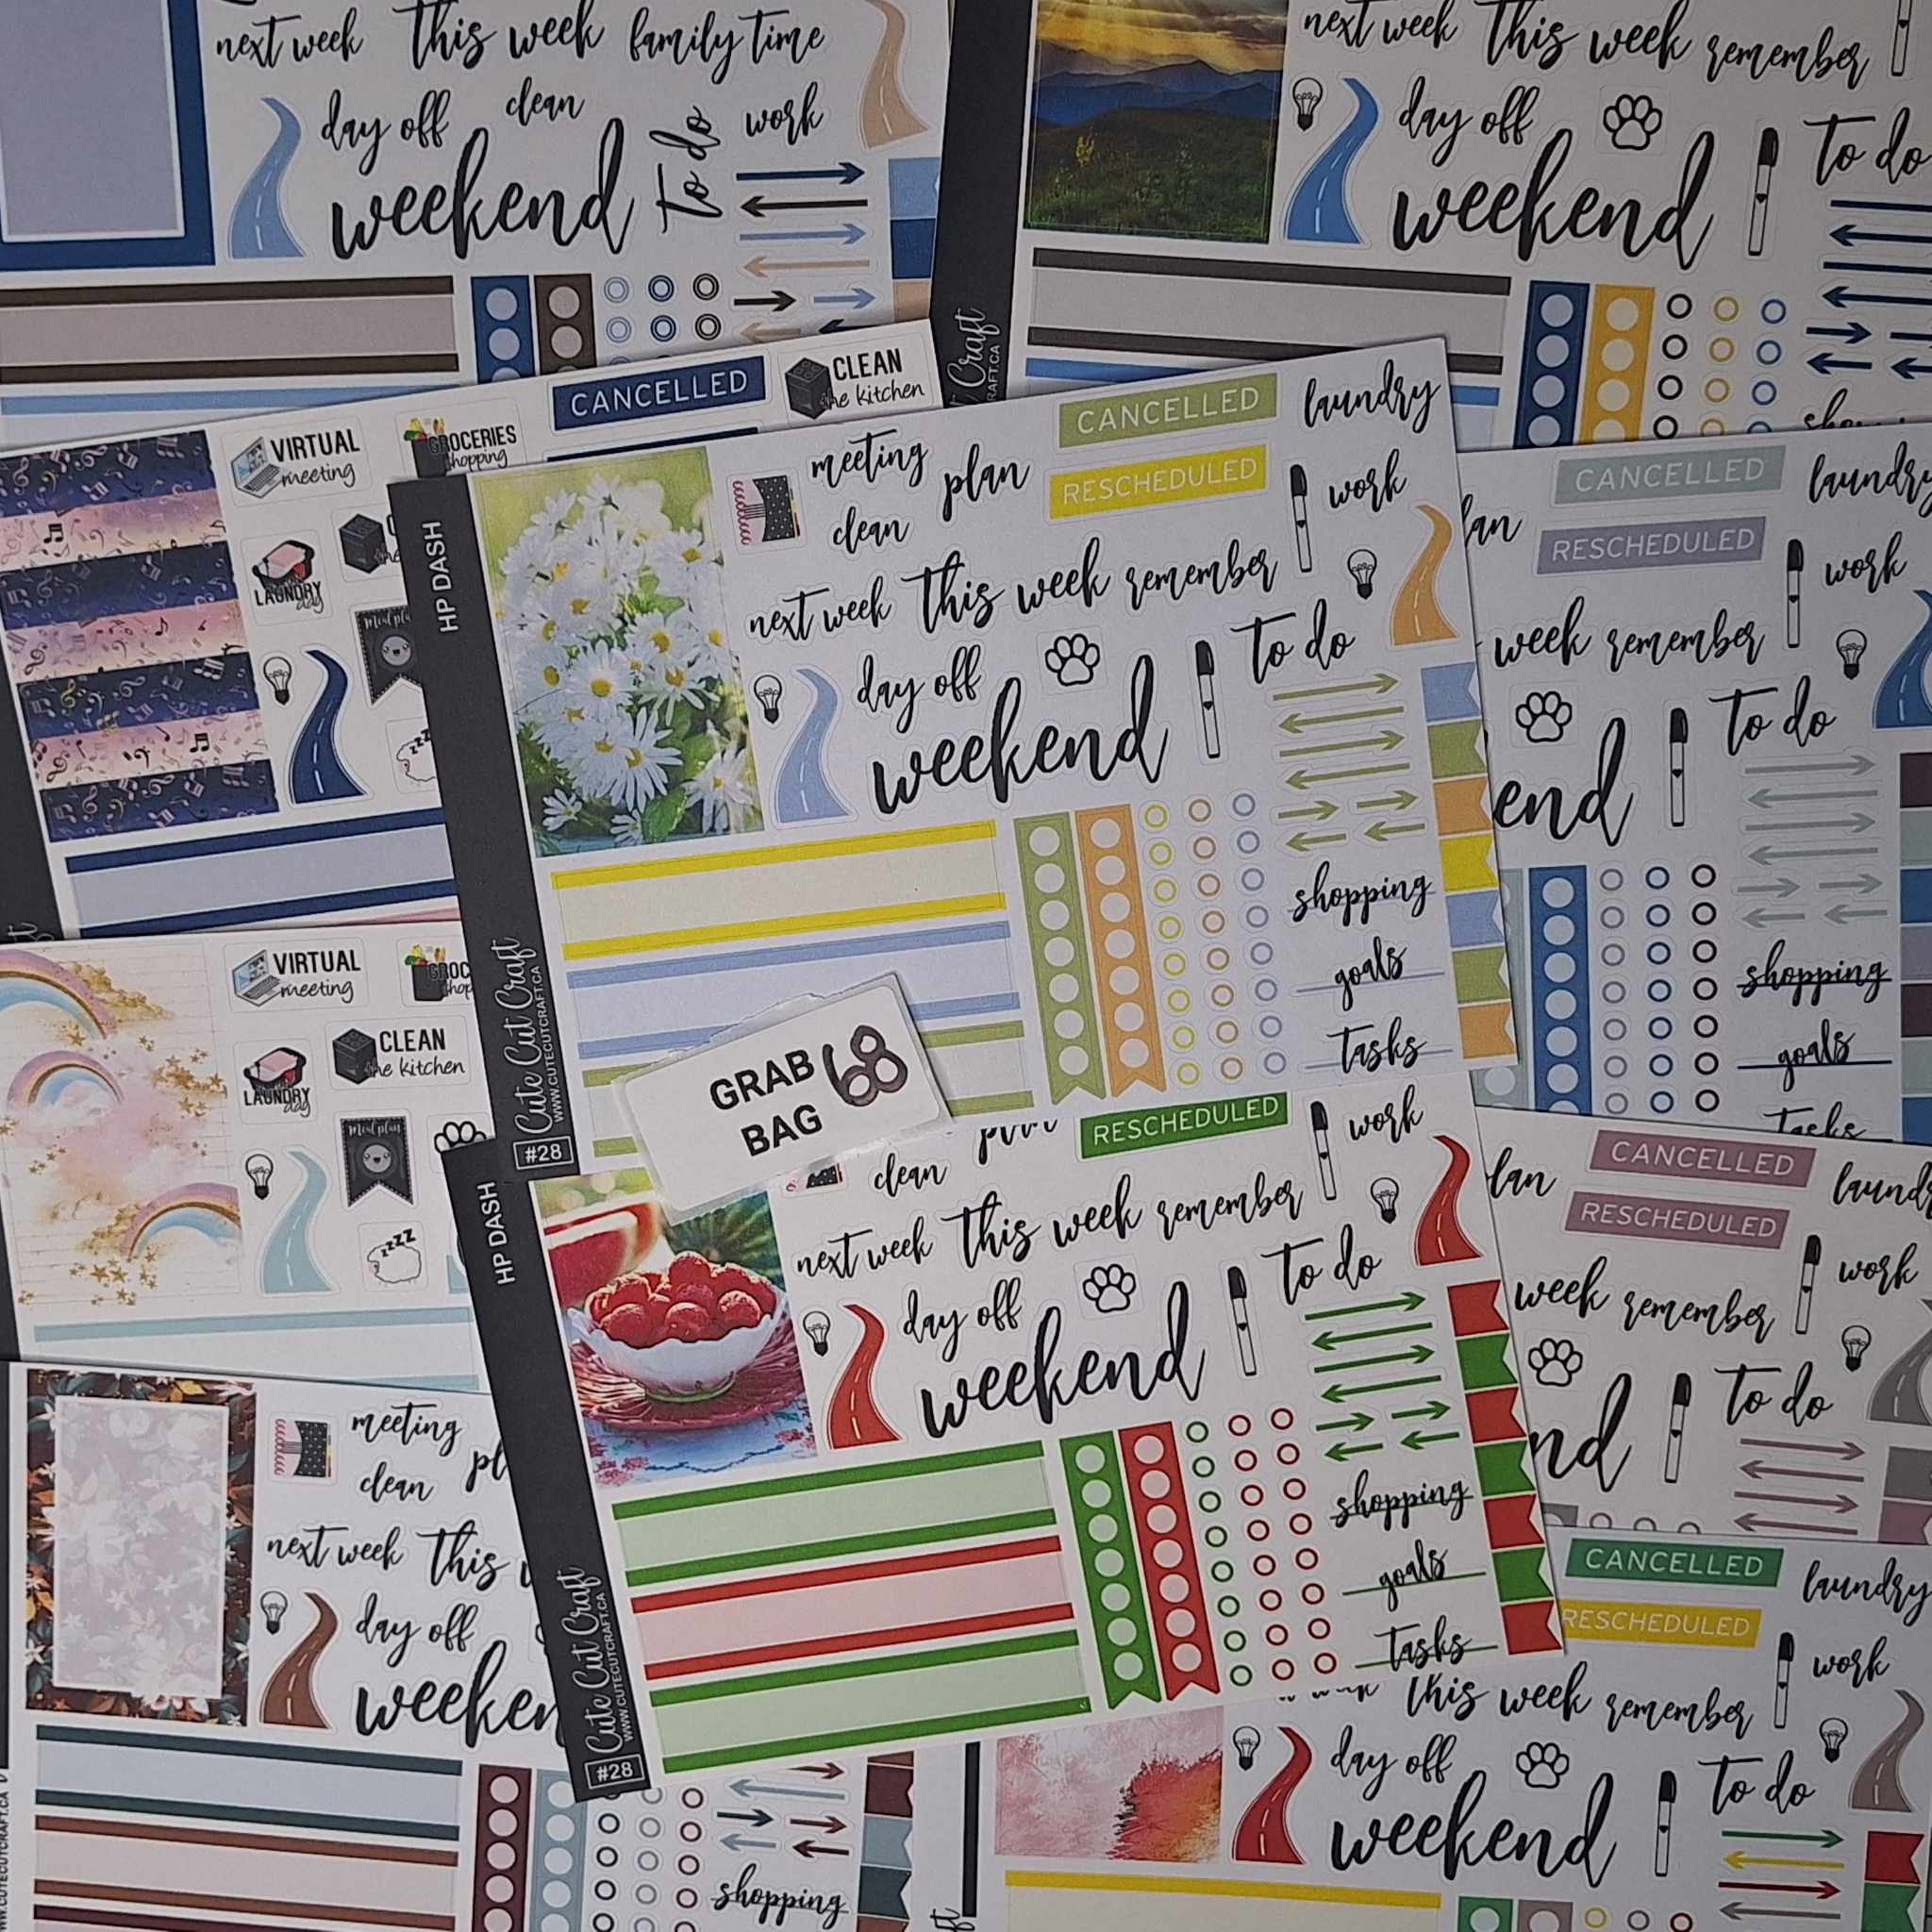 next week this week family time
day off clean To do work
weekend
next week this week remember
day off to do
weekend
CUTECUTCRAFT.CA
VIRTUAL
meeting
GROCERIES
shopping
CANCELLED
CLEAN
the kitchen
LAUNDRY
day
Meal plan
zzz
HP DASH
CANCELLED laundry
meeting plan
RESCHEDULED
clean work
next week this week remember
day off to do
weekend
shopping
goals
tasks
Cute Cut Craft
WWW.CUTECUTCRAFT.CA
#28
GRAB
BAG 68
CANCELLED laundry
RESCHEDULED
work
week remember
to do
shopping
goals
VIRTUAL
meeting
CLEAN
the kitchen
LAUNDRY
day
Meal plan
zzzz
HP DASH
RESCHEDULED
clean work
next week this week remember
day off to do
weekend
shopping
goals
tasks
Cute Cut Craft
WWW.CUTECUTCRAFT.CA
#28
CANCELLED
RESCHEDULED
work
week remember
to do
meeting
clean
next week this
day off
shopping
CANCELLED laundry
RESCHEDULED
work
this week remember
day off to do
weekend